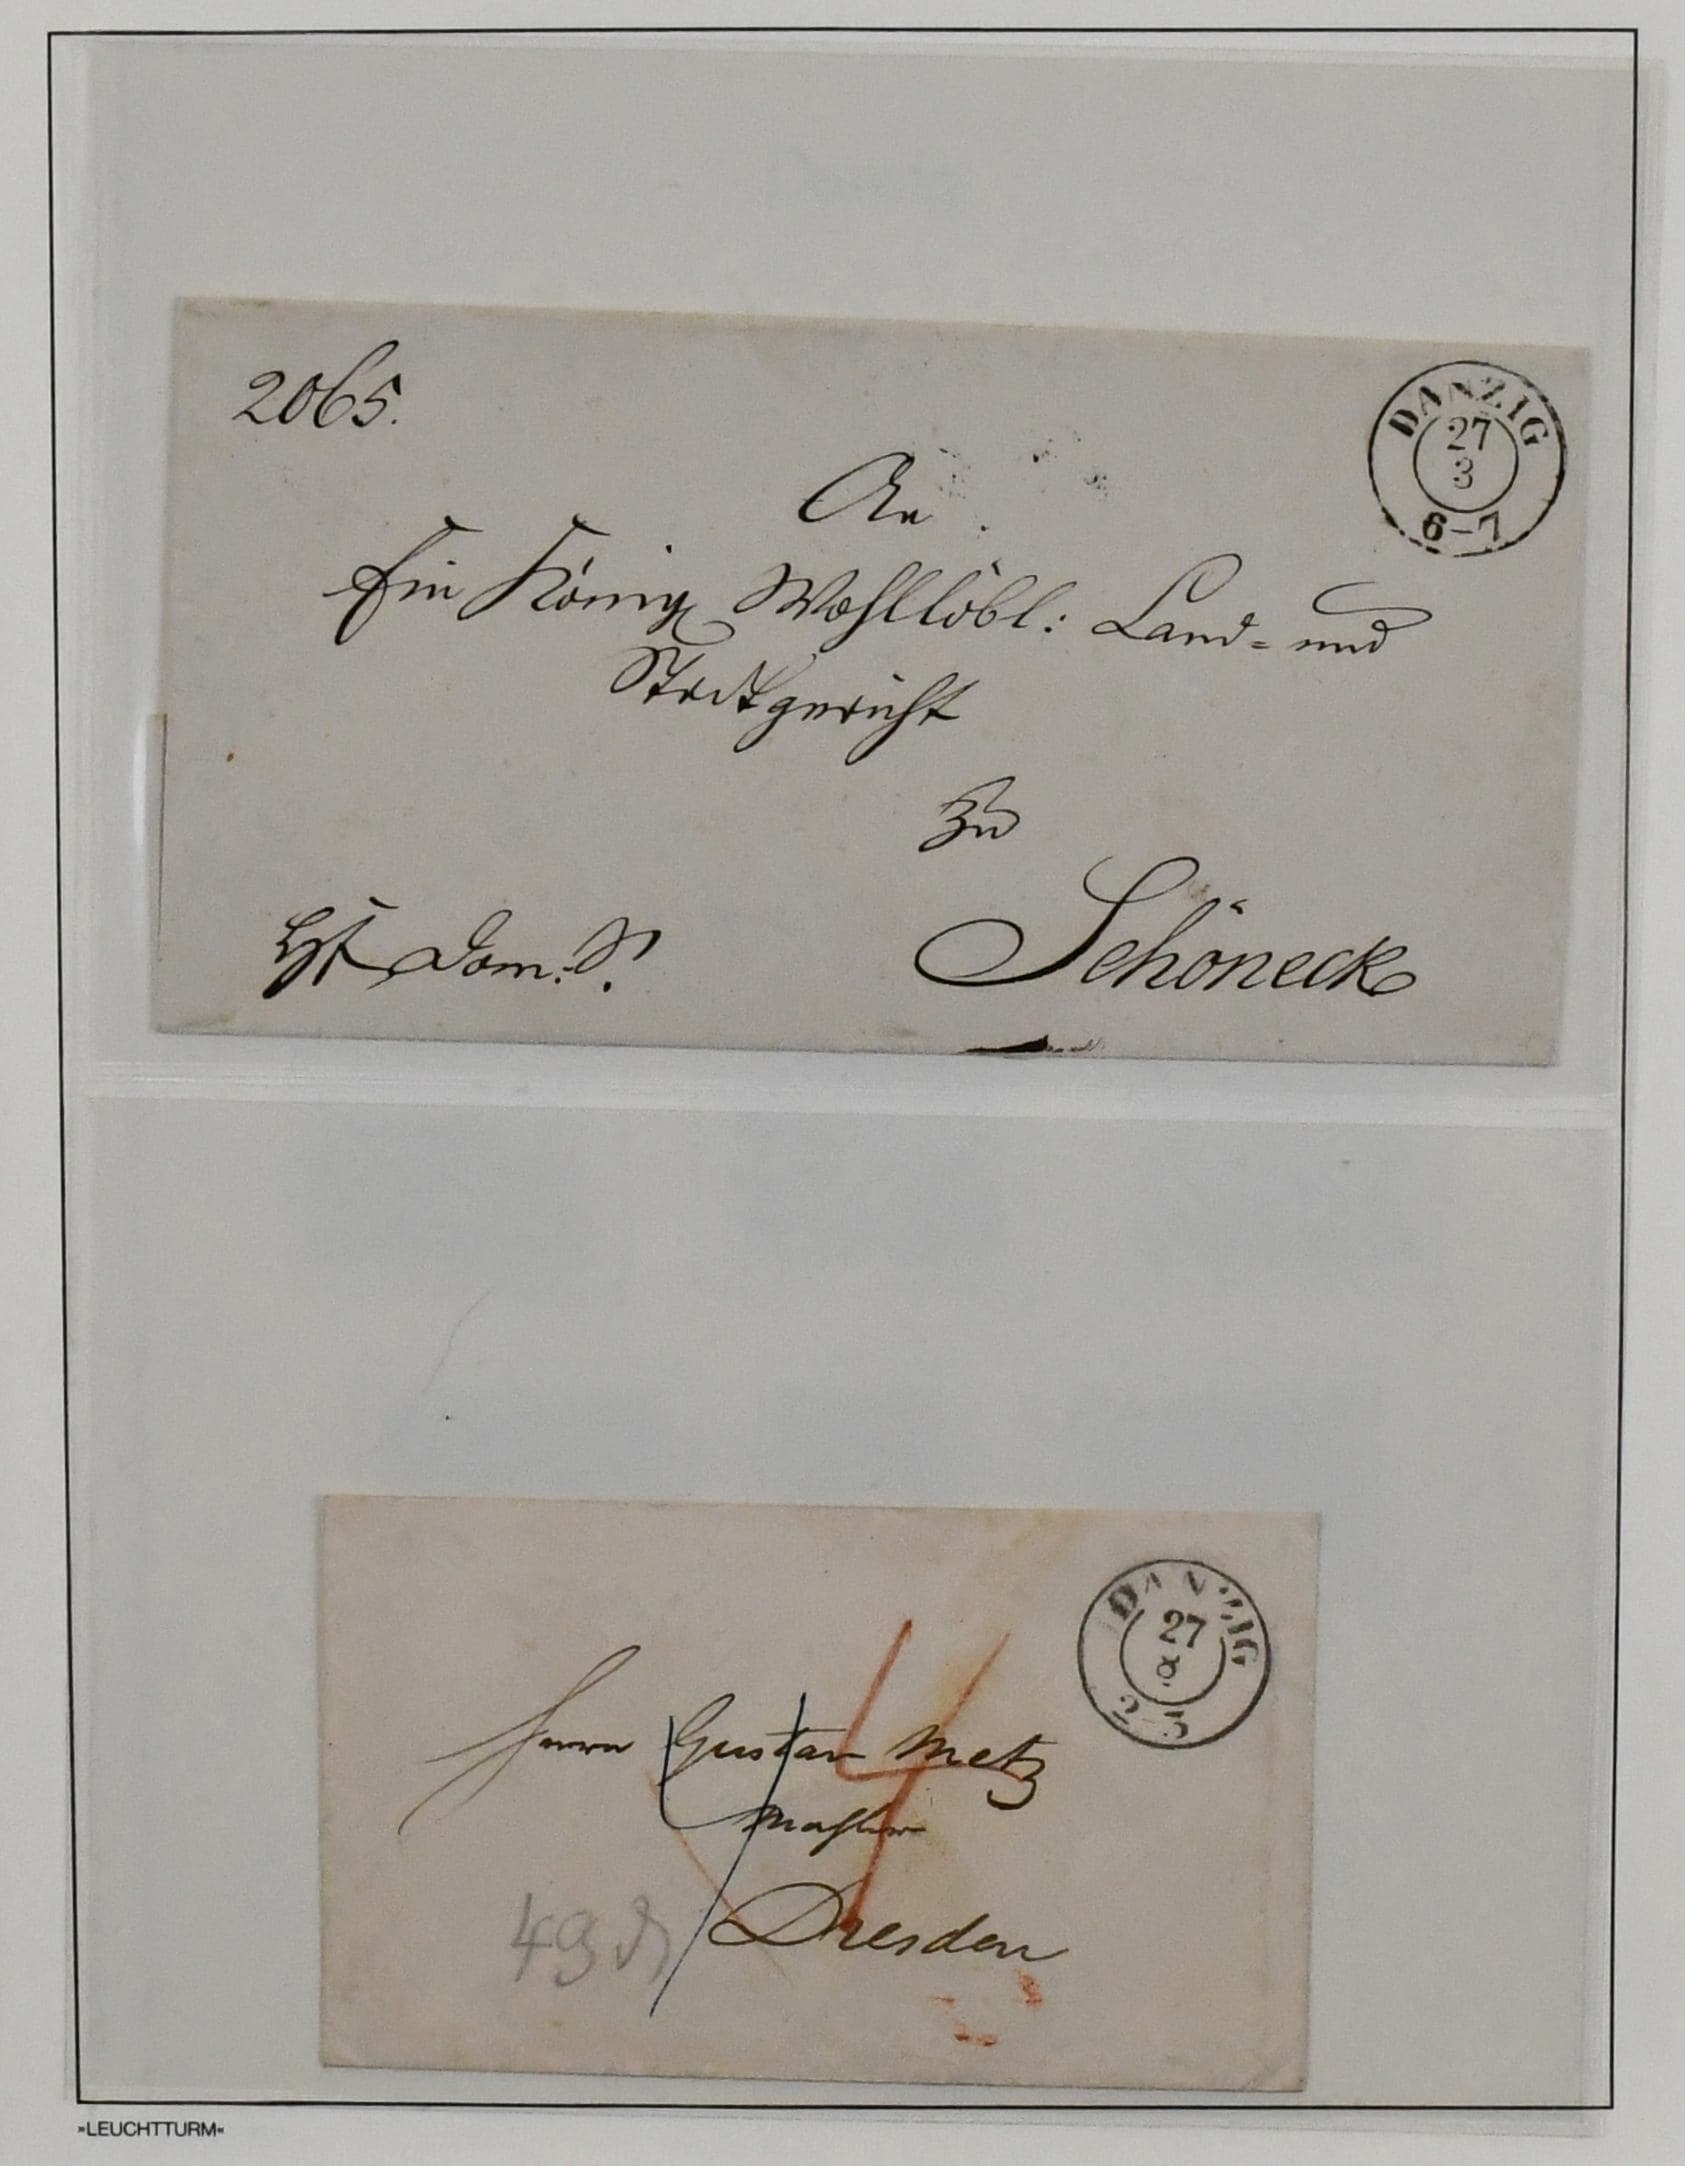 2065.
DANZIG
27
3
6-7
An
Ein Königl Wohllöbl: Land= und
Stadtgericht
zu
Schöneck
Dom: S.
DANZIG
27
8
2-3
4
Herrn Gustav Metz
Mahler
Dresden
49
»LEUCHTTURM«